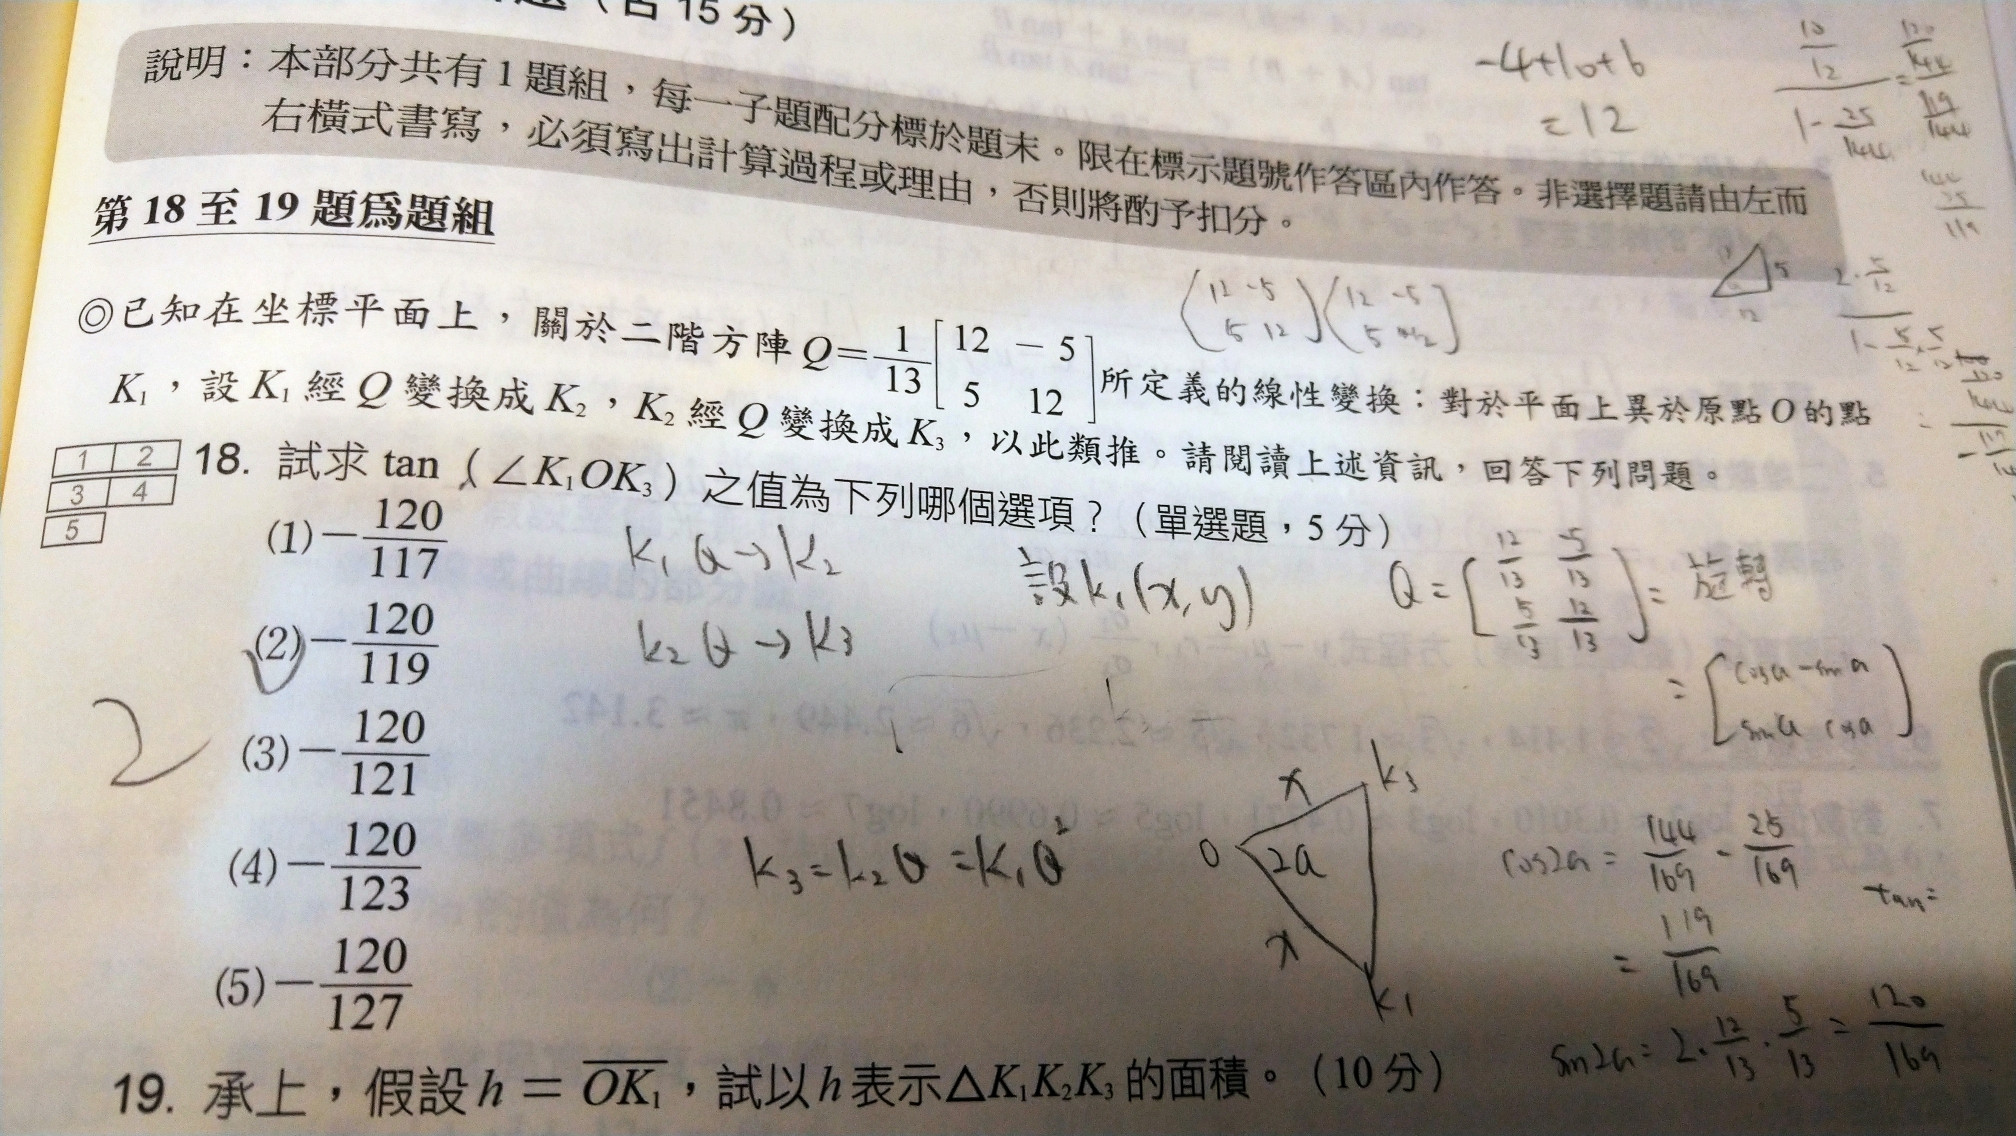 (占 15 分)
說明：本部分共有 1 題組，每一子題配分標於題末。限在標示題號作答區內作答。非選擇題請由左而
右橫式書寫，必須寫出計算過程或理由，否則將酌予扣分。
-4+10+6
=12
第 18 至 19 題為題組
◎已知在坐標平面上，關於二階方陣 Q=1/13[12 －5; 5 12]所定義的線性變換：對於平面上異於原點 O 的點
K₁，設 K₁ 經 Q 變換成 K₂，K₂ 經 Q 變換成 K₃，以此類推。請閱讀上述資訊，回答下列問題。
1 2
3 4
5
18. 試求 tan（∠K₁OK₃）之值為下列哪個選項？（單選題，5 分）
(1)－120/117
(2)－120/119
(3)－120/121
(4)－120/123
(5)－120/127
2
K₁ Q → K₂
K₂ Q → K₃
設 K₁(x,y)
Q = [12/13 -5/13; 5/13 12/13] = 旋轉
= [cosa -sina; sina cosa]
K₃ = K₂Q = K₁Q²
x
K₃
O
2a
x
K₁
cos2a = 144/169 - 25/169
= 119/169
tan =
sin2a = 2·12/13·5/13 = 120/169
19. 承上，假設 h = OK₁，試以 h 表示△K₁K₂K₃ 的面積。（10 分）